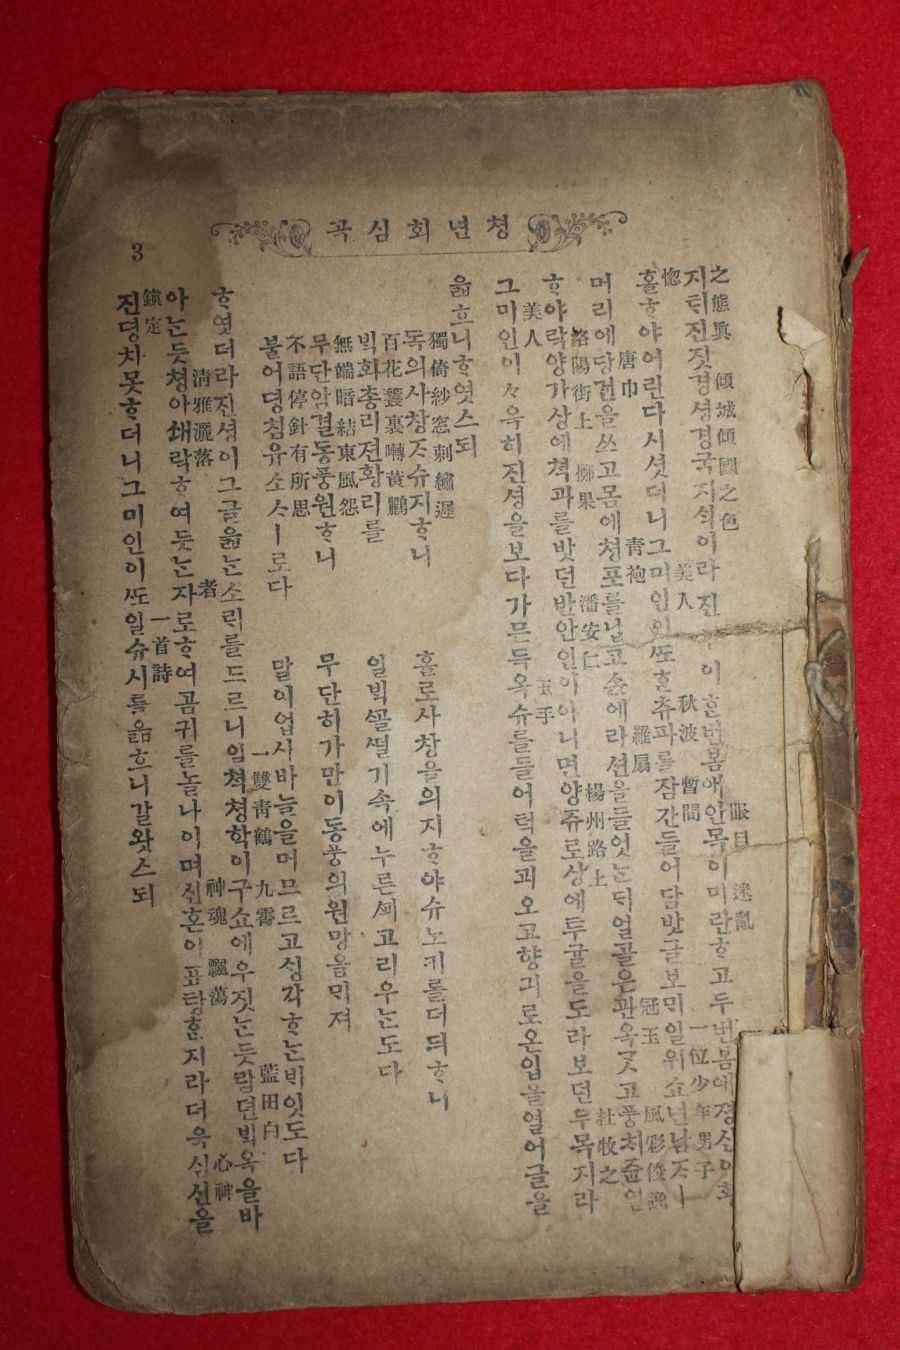 쳥년회심곡
3
之態眞 傾城傾國之色 眼目 迷亂
지틱진짓경셩경국지쇡이라진 이ᄒᆞᆫ번봄애안목이미란ᄒᆞ고두번봄애졍신이황
惚 美人 秋波 暫間 一位少年男子
홀ᄒᆞ야어린다시셧더니그미인이ᄯᅩᄒᆞᆫ츄파를잠간들어담밧글보ᄆᆡ일위쇼년남ᄌᆞㅣ
唐巾 靑袍 羅扇 冠玉 風彩俊逸
머리에당건을쓰고몸에쳥포를닙고손에라션을들엇ᄂᆞᆫᄃᆡ얼골은관옥ᄀᆞᆺ고풍치쥰일
洛陽街上 擲果 潘安仁 楊州路上 杜牧之
ᄒᆞ야락양가상에쳑과를밧던반안인이아니면양쥬로상에투귤을도라보던두목지라
美人 玉手
그미인이々윽히진셩을보다가믄득옥슈를들어턱을괴오고향긔로온입을열어글을
읇흐니ᄒᆞ엿스되
獨倚紗窓刺繡遲
독의사창ᄌᆞ슈지ᄒᆞ니 홀로사창을의지ᄒᆞ야슈노키를더듸ᄒᆞ니
百花叢裏囀黃鸝
ᄇᆡᆨ화총리젼황리를 일ᄇᆡᆨᄭᅩᆯ떨기속에누른ᄭᅬ고리우ᄂᆞᆫ도다
無端暗結東風怨
무단암결동풍원ᄒᆞ니 무단히가만이동풍의원망을ᄆᆡ져
不語停針有所思
불어뎡침유소ᄉᆞㅣ로다 말이업시바늘을머므르고ᄉᆡᆼ각ᄒᆞᄂᆞᆫᄇᆡ잇도다
者 一雙靑鶴 九霄 藍田白
ᄒᆞ엿더라진셩이그글읇ᄂᆞᆫ소ᄅᆡ를드르니일쳑쳥학이구쇼에우짓ᄂᆞᆫ듯람뎐ᄇᆡᆨ옥을바
淸雅灑落 神魂 飄蕩 心神
아ᄂᆞᆫ듯쳥아쇄락ᄒᆞ여듯ᄂᆞᆫ자로ᄒᆞ여곰귀를놀나이며신혼이표탕ᄒᆞᆫ지라더욱심신을
鎭定 一首詩
진뎡치못ᄒᆞ더니그미인이ᄯᅩ일슈시를읇흐니갈왓스되